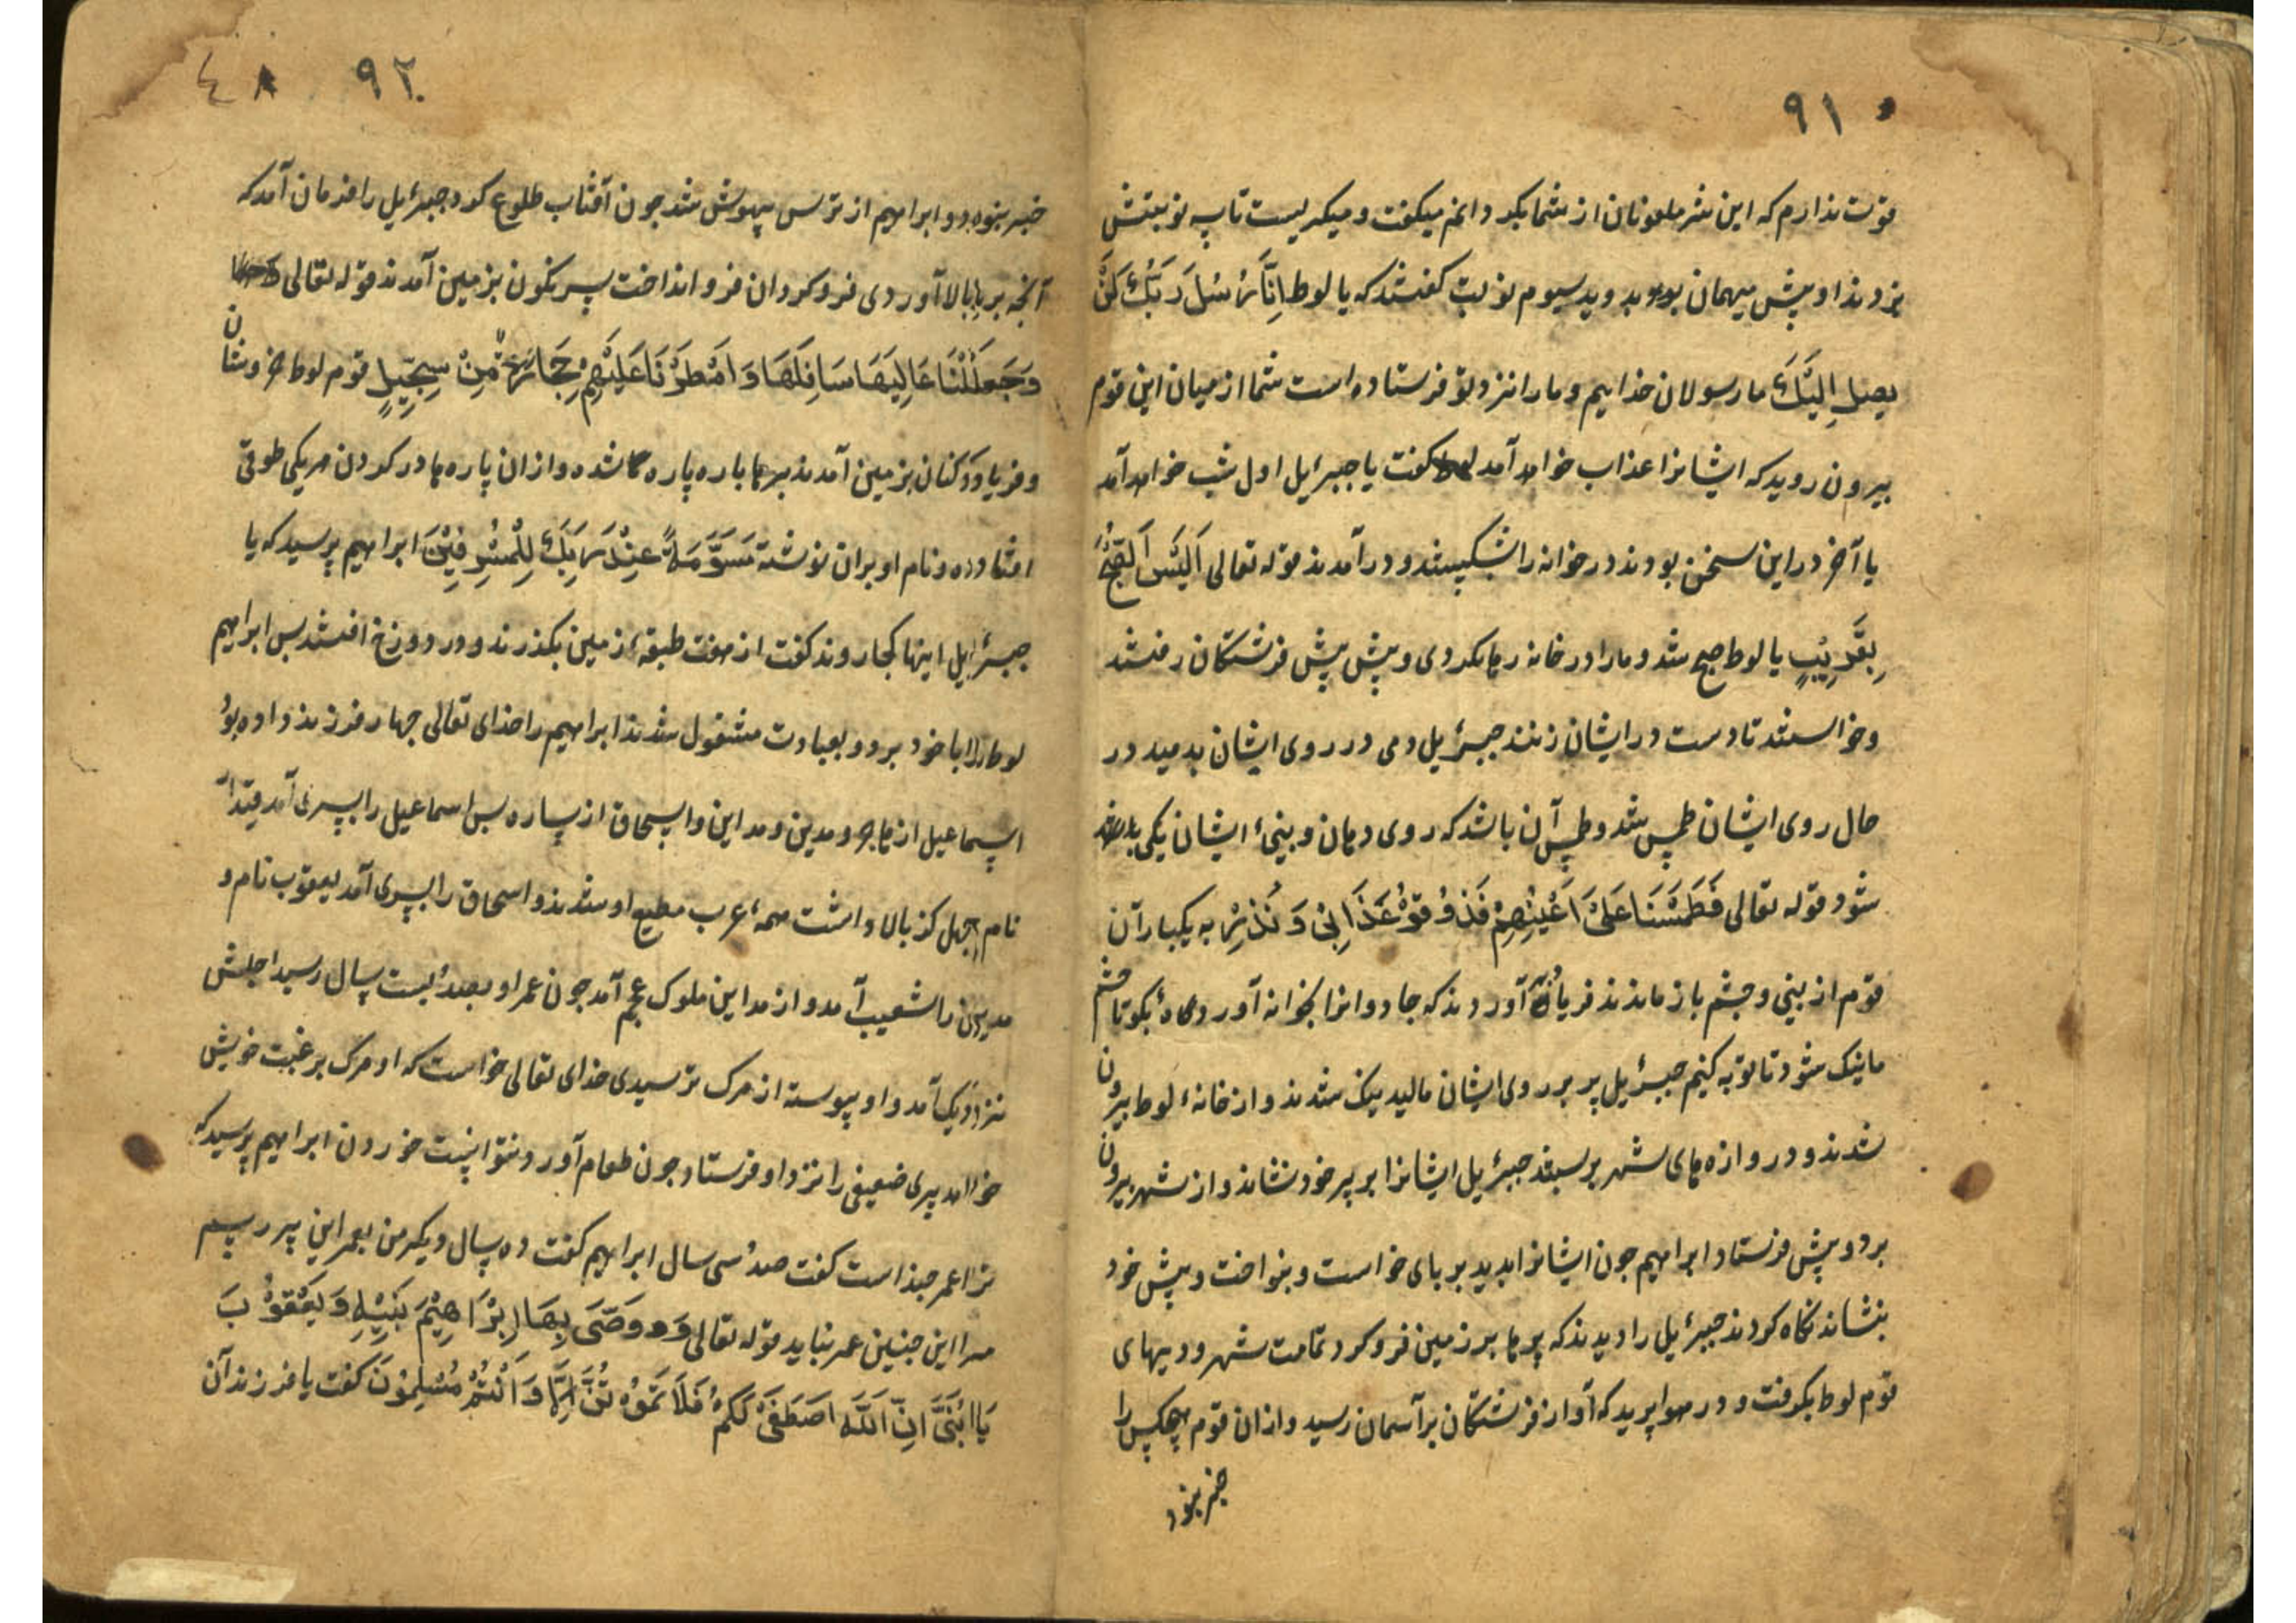 ۹۱
قوت ندارم که این شر ملعونان از شما بگردانم میگفت و میگریست تا سه نوبتش
بزدند او پیش میهمان بود بدوید سیوم نوبت گفتند که یا لوط اِنَّا رُسُلُ رَبِّكَ لَنْ
یصِلُ اِلَیْكَ ما رسولان خداییم و ما را نزد تو فرستاده است شما از میان این قوم
بیرون روید که ایشانرا عذاب خواهد آمد لوط گفت یا جبرئیل اول شب خواهد آمد
یا آخر در این سخن بودند در خوانه را بشکستند و در آمدند قوله تعالی اَلَیْسَ الصُّبْحُ
بِقَرِیْبٍ یا لوط صبح شد و ما را در خانه رها نکردی و پیش پیش فرشتگان رفتند
و خواستند تا دست در ایشان زنند جبرئیل دمی در روی ایشان بدمید در
حال روی ایشان طمس شد و طمس آن باشد که روی دهان و بینیٔ ایشان یکی
شود قوله تعالی فَطَمَسْنَا عَلَیْ اَعْیُنِهِمْ فَذُوْقُوْ عَذَابِیْ وَ نُذُرِ به یکبار آن
قوم از بینی و چشم باز ماندند فریاد آوردند که جادوانرا بخوانه آوردهٔ بگو تا چشم
ما نیک شود تا توبه کنیم جبرئیل پر بر روی ایشان مالید نیک شدند و از خانهٔ لوط بیرون
شدند و دروازه های شهر بر بستند جبرئیل ایشانرا بر پر خود نشاند و از شهر بیرون
برد و پیش فرستاد ابراهیم چون ایشانرا بدید بر پای خواست و بنواخت و پیش خود
بنشاند نگاه کردند جبرئیل را دیدند که پرها بر زمین فرو کرد تمامت شهر و دیههای
قوم لوط بگرفت و در هوا پرید که آواز فرشتگان بر آسمان رسید و از آن قوم هیچکس را
خبر نبود
۹۲ ٤٨
خبر نبود و ابراهیم از ترس بیهوش شد چون آفتاب طلوع کرد جبرئیل را فرمان آمد که
آنچه بر بالا آوردی فرو کردان فرو انداخت سرنگون بزمین آمدند قوله تعالی
وَجَعَلْنَا عَالِیَهَا سَافِلَهَا وَ اَمْطَرْنَا عَلَیْهِمْ حِجَارَةً مِّنْ سِجِّیْلٍ قوم لوط خروشان
و فریاد کنان بزمین آمدند پرها پاره پاره شده و از آن پاره ها در گردن هر یکی طوقی
افتاده و نام او بران نوشته مُسَوَّمَةً عِنْدَ رَبِّكَ لِلْمُسْرِفِیْنَ ابراهیم پرسید که یا
جبرئیل اینها کجا روند گفت از هفت طبقهٔ زمین بگذرند و در دوزخ افتند پس ابراهیم
لوط را با خود برد و بعبادت مشغول شدند ابراهیم را خدای تعالی چهار فرزند داده بود
اسماعیل از هاجر و مدین و مداین و اسحاق از ساره پس اسماعیل را پسری آمد قیدار
نام چهل گز بالا داشت همهٔ عرب مطیع او شدند و اسحاق را پسری آمد یعقوب نام و
مدین را شعیب آمد و از مداین ملوک عجم آمد چون عمر او بصد بیست سال رسید اجلش
نزدیک آمد و او پیوسته از مرک ترسیدی خدای تعالی خواست که او مرک برغبت خویش
خواهد پیری ضعیفی را نزد او فرستاد چون طعام آورد نتوانست خوردن ابراهیم پرسید که
ترا عمر چند است گفت صد سی سال ابراهیم گفت ده سال دیگر من بعمر این پیر رسم
مرا این چنین عمر نباید قوله تعالی وَ وَصَّی بِهَا اِبْرَاهِیْمَ بَنِیْهِ وَ یَعْقُوْبَ
یَا بُنَیَّ اِنَّ اللّٰهَ اصْطَفَیْ لَکُمْ فَلَا تَمُوْتُنَّ اِلَّا وَ اَنْتُمْ مُسْلِمُوْنَ گفت یا فرزندان